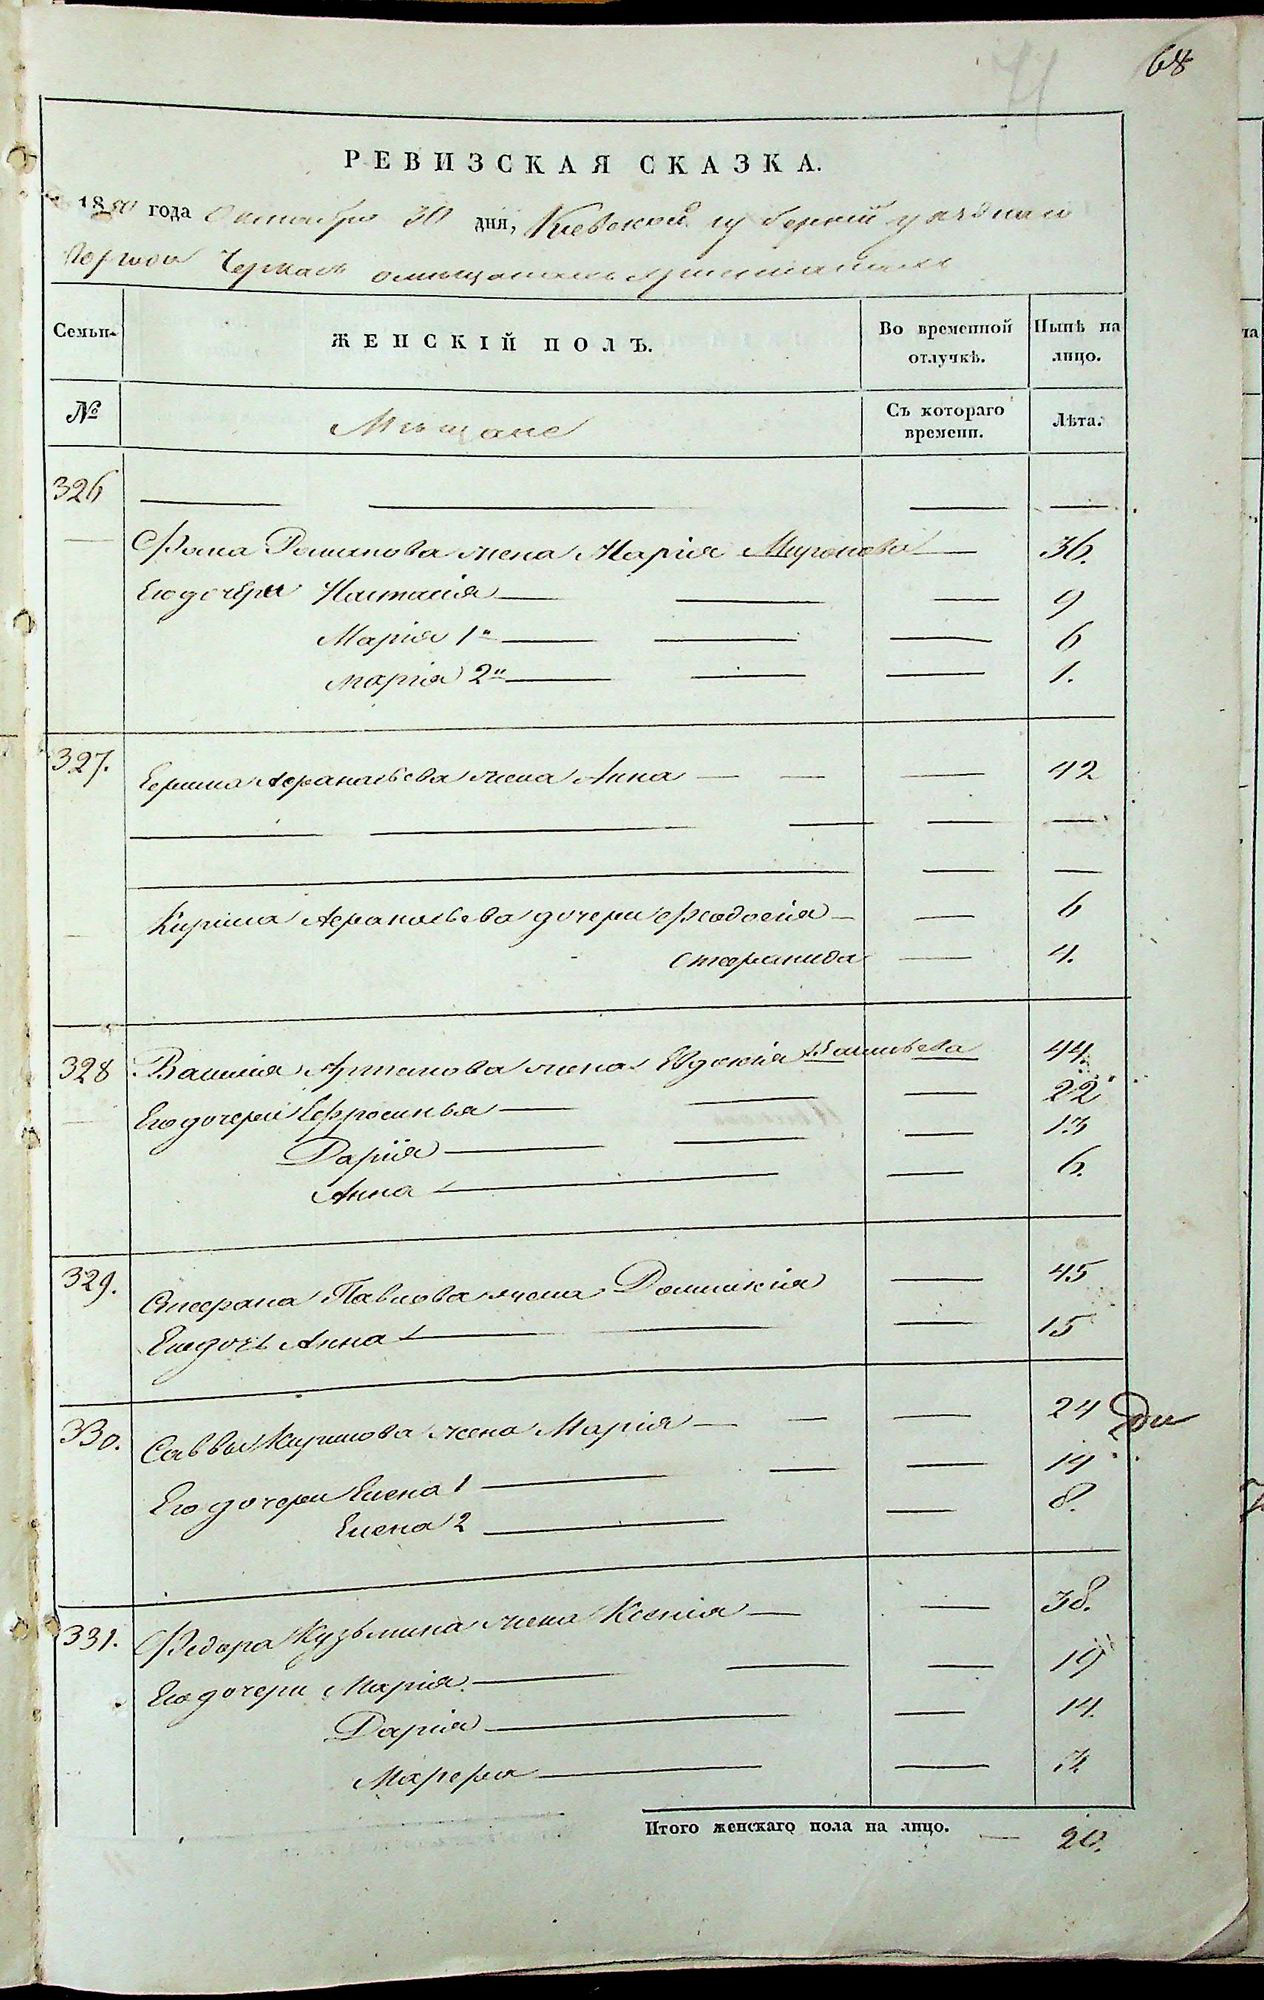 68
71
РЕВИЗСКАЯ СКАЗКА.
1850 года Октября 30 дня, Киевской губерніи уезднаго
города Черкасъ о мещанахъ христіанахъ
Семьи ЖЕНСКІЙ ПОЛЪ. Во временной отлучкѣ. Нынѣ на лицо.
№ Мещане Съ котораго времени. Лѣта.
326
Фома Романова жена Марія Миронова 36.
Его дочери Настасія 9
Марія 1я 6
Марія 2я 1.
327. жена Анна 42
Кирила дочери Феодосія 6
Стефанида 4.
328 Василія Артемова жена Евдокія Васильева 44.
Его дочери Ефросинья 22
Дарія 13
Анна 6.
329. Стефана Павлова жена Домникія 45
Его дочь Анна 15
330. Саввы Кирилова жена Марія 24
Его дочери Елена 1 14
Елена 2 8.
331. Федора Кузьмина жена Ксенія 38.
Его дочери Марія 19
Дарія 14.
Марфа 3
Итого женскаго пола на лицо. 20.